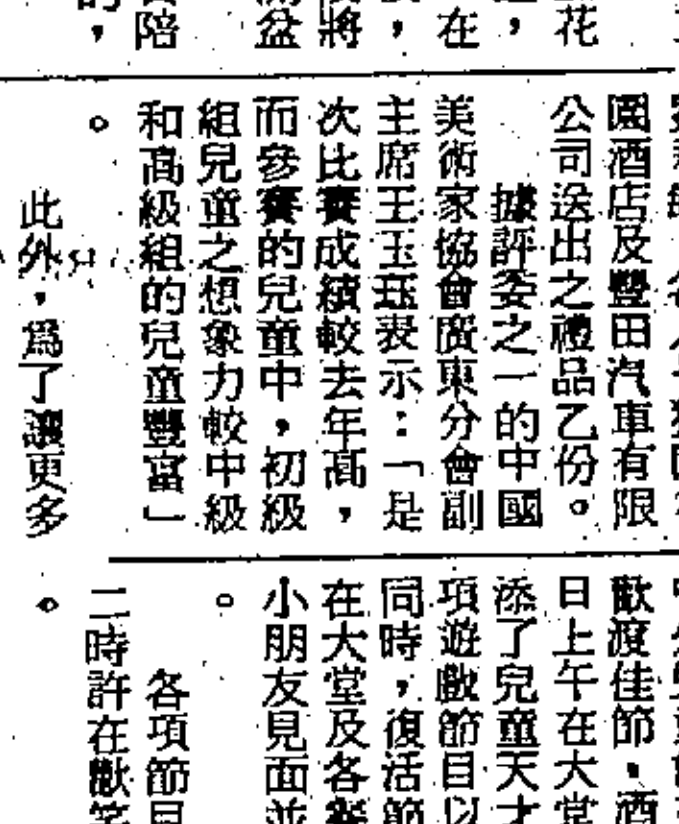 花
，在
將
盆
陪
，
園酒店及豐田汽車有限
公司送出之禮品乙份。
據評委之一的中國
美術家協會廣東分會副
主席王玉珏表示：「是
次比賽成績較去年高，
而參賽的兒童中，初級
組兒童之想象力較中級
和高級組的兒童豐富」
。
此外，爲了讓更多
歡渡佳節，酒
日上午在大堂
添了兒童天才
項遊戲節目以
同時，復活節
在大堂及各
小朋友見面並
。
各項節目
二時許在歡笑
。